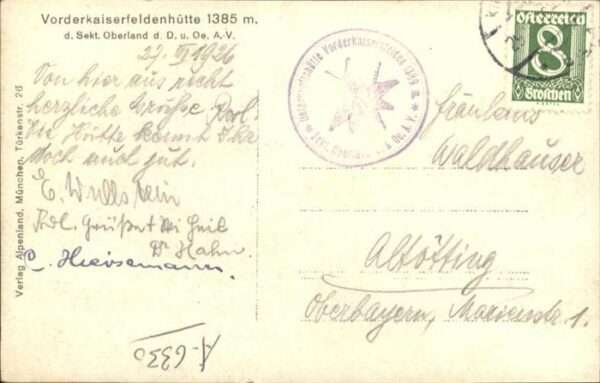 Vorderkaiserfeldenhütte 1385 m.
d. Sekt. Oberland d. D. u. Oe. A.-V.
27. VI 1926
Von hier aus recht
herzliche Grüße
Die Hütte kennt
doch auch gut.
E. Wullstein
Frdl. Grüße u. Ski Heil
Dr Hahn.
Heinemann
Verlag Alpenland, München, Türkenstr. 26
Unterkunftshütte Vorderkaiserfelden 1389 m.
Sekt. Oberland d. D. u. Oe. A. V.
Österreich
8
Groschen
Fräulein
Waldhauser
Altötting
Oberbayern, Marienstr. 1.
A-6330